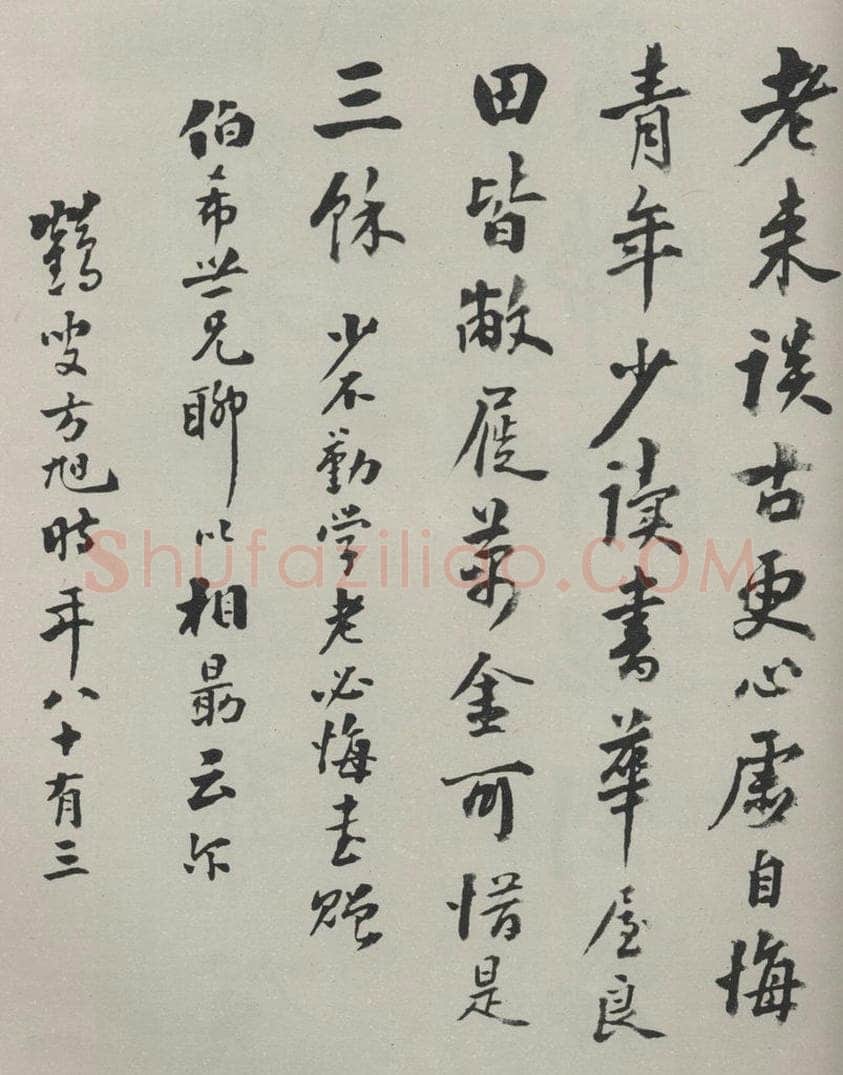 老来谈古更心虚自悔
青年少读书华屋良
田皆敝屣万金可惜是
三馀 少不勤学老必悔书赠
伯希世兄聊以相勗云尔
鹤叟方旭时年八十有三
Shufaziliao.COM